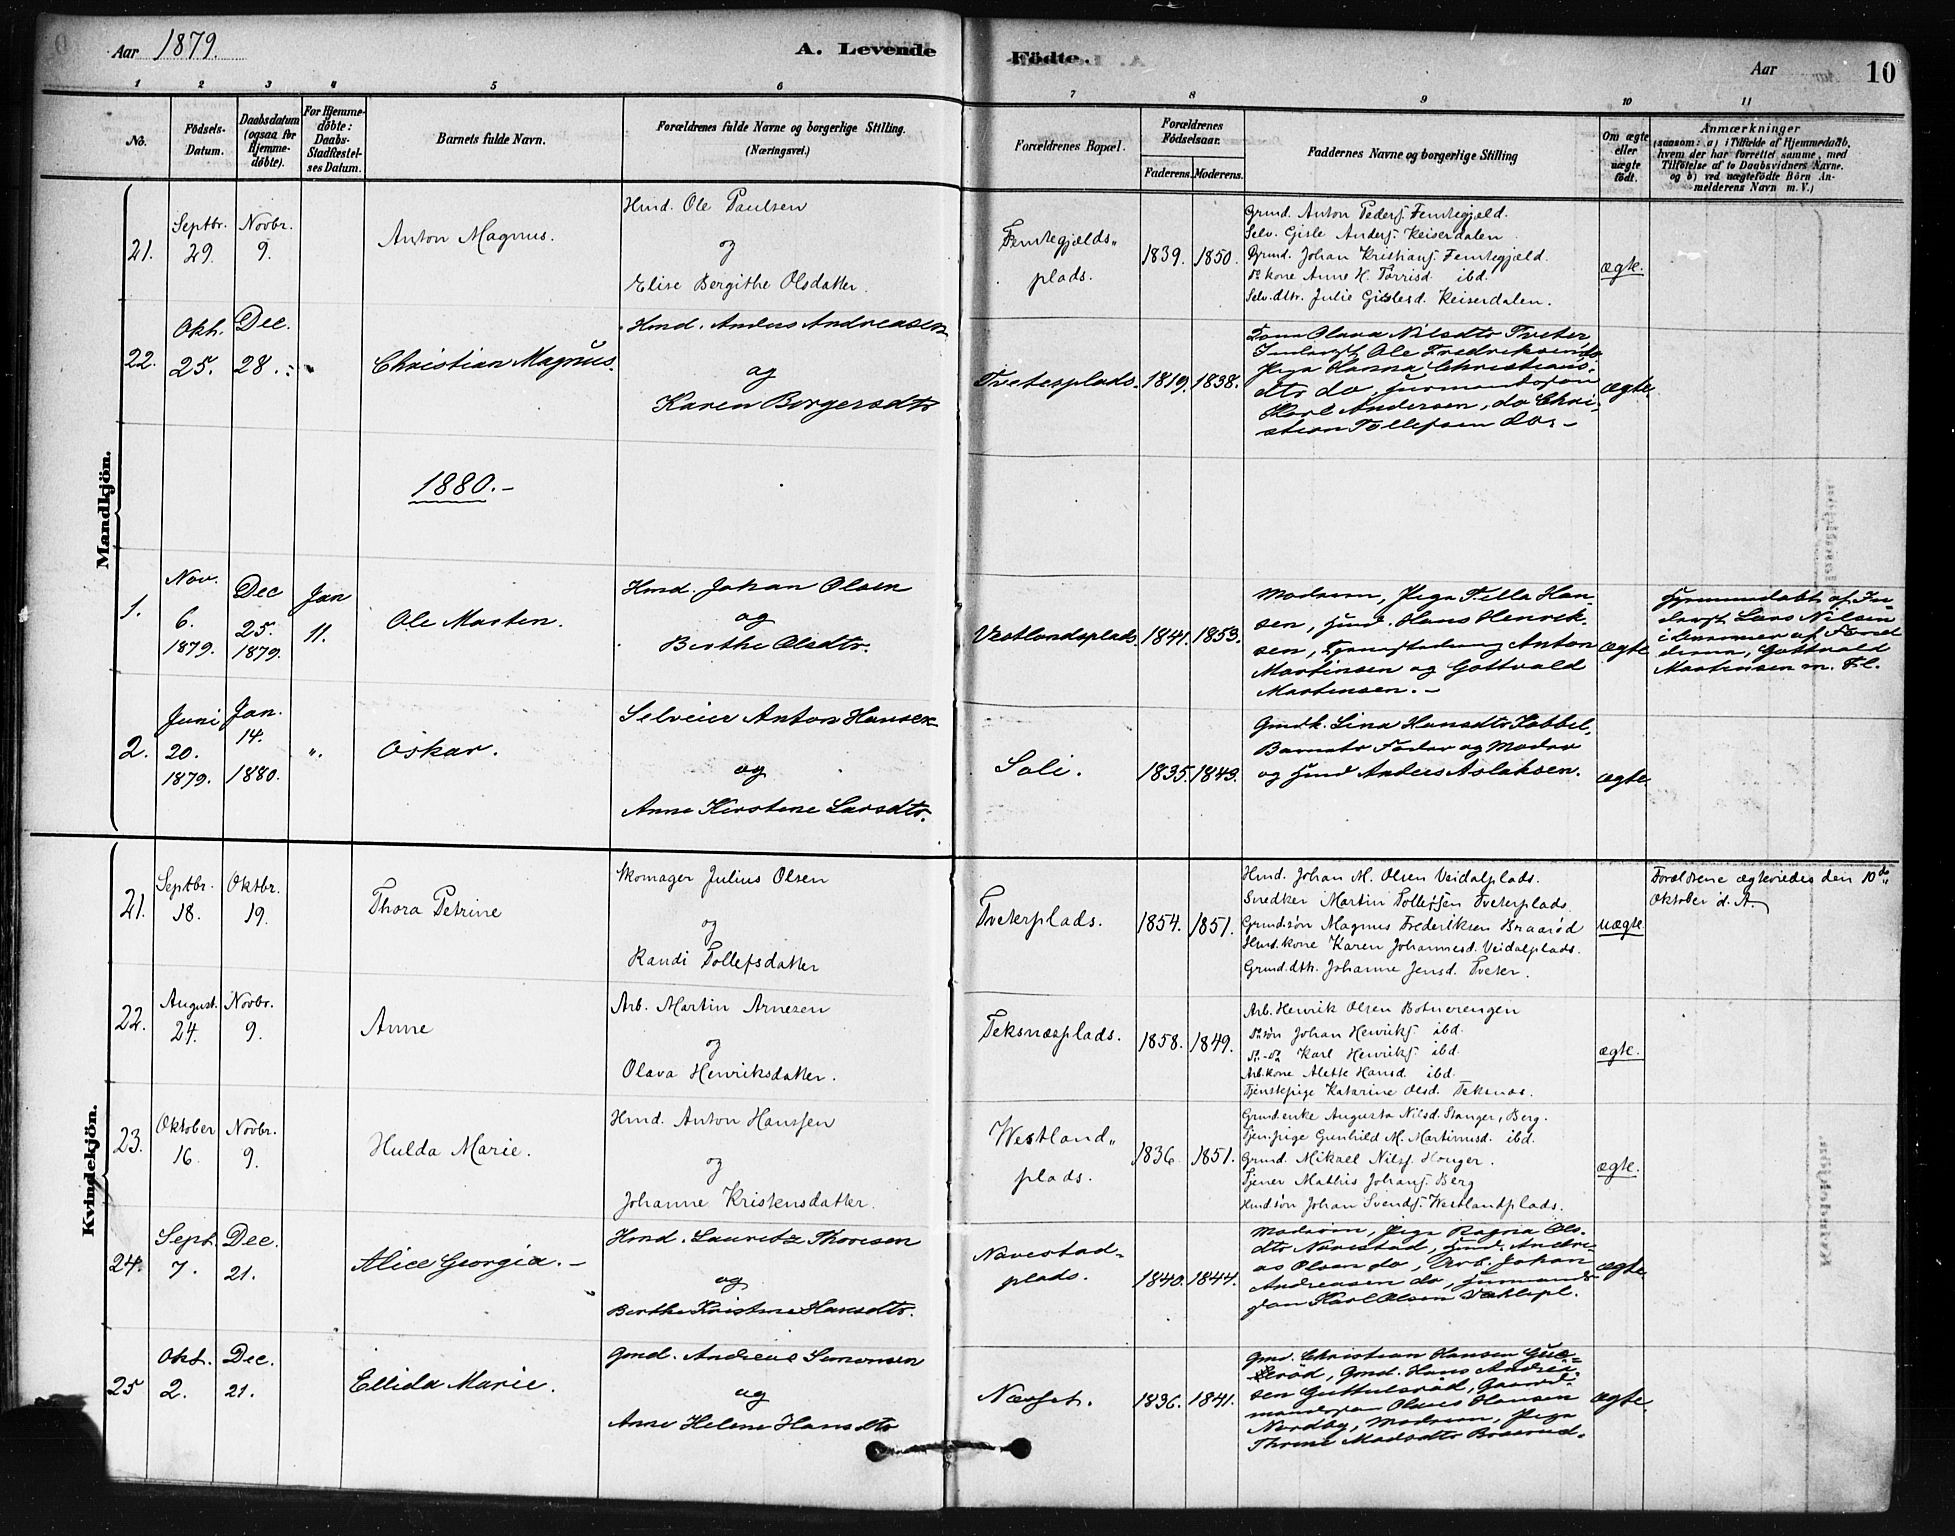 Aar 1879.
A. Levende
Födte.
Aar
10
1 2 3 4 5 6 7 8 9 10 11
No.
Födsels-
Datum.
Daabsdatum
(ogsaa for
Hjemme-
döbte).
For Hjemme-
döbte:
Daabs-
Stadfæstel-
ses Datum.
Barnets fulde Navn.
Forældrenes fulde Navne og borgerlige Stilling.
(Næringsvei.)
Forældrenes Bopæl.
Forældrenes
Födselsaar.
Faderens. Moderens.
Faddernes Navne og borgerlige Stilling
Om ægte
eller
uægte
födt.
Anmærkninger
(saasom: a) i Tilfælde af Hjemmedaab,
hvem der har forrettet samme, med
Tilföielse af to Daabsvidners Navne.
og b) ved uægtefödte Börn An-
melderens Navn m. V.)
Mandkjön.
21.
Septbr.
29.
Novbr.
9.
Anton Magnus.
Hmd. Ole Paulsen
og
Elise Bergithe Olsdatter.
Femtegjelds„
plads.
1839. 1850.
Grmd. Anton Peders. Femtegjeld.
Selv. Gisle Anders. Keiserdalen.
Grmd. Johan Kristians. Femtegjeld.
Do kone Anne H. Torrisd. ibd.
Selv.dtr. Julie Gislesd. Keiserdalen.
ægte.
22.
Okt.
25.
Dec.
28.
"
Christian Magnus.
Hmd. Anders Andreasen
og
Karen Borgersdtr
Tvetesplads.
1819. 1838.
Kona Olava Nilsdtr Tveter,
Ole Fredriksen do,
Pige Hanna Christians-
dtr do,
Karl Andersen, do Chri-
stian Tollefsen do.-
ægte.
1880.-
1.
Nov.
6.
1879.
Dec
25.
1879.
Jan
11.
Ole Marten.
Hmd. Johan Olsen
og
Berthe Olsdtr.
Vestlandsplads.
1841. 1853.
Moderen, Pige Tilla Han-
sen, Hmd. Hans Henrik-
sen, Anton
Martinsen og Gottvald
Martinsen.-
ægte
Hjemmedøbt af
Lars Nilsen
i Nærvær af Foræl
drene, Gottvald
Martinsen m. Fl.
2.
Juni
20.
1879.
Jan.
14.
1880.
".
Oskar.
Selveier Anton Hansen
og
Anne Kirstene Larsdtr.
Soli.
1835. 1843.
Gmdk. Lina Hansdtr Kabbel,
Barnets Fader og Moder
og Hmd Anders Aslaksen.
ægte
Kvindekjön.
21.
Septbr.
18.
Oktbr.
19.
Thora Petrine
Skomager Julius Olsen
og
Randi Tollefsdatter
Tveterplads.
1854. 1851.
Hmd. Johan M. Olsen Veidalplads.
Snedker Martin Tollefsen Tveterplads.
Grmd.søn Magnus Frederiksen Braarød
Hmd.kone Karen Johannesd. Veidalplads.
Grmd.dtr. Johanne Jensd. Tveter.
uægte
Forældrene ægteviedes den 10de
Oktober d. A.
22.
August.
24.
Novbr.
9.
Anne
Arb. Martin Arnesen
og
Olava Henriksdatter.
Teksnæsplads.
1858. 1849.
Arb. Henrik Olsen Botnerengen
Do søn Johan Henriks. ibd.
Do - Do Karl Henriks. ibd.
Arb.kone Alette Hansd. ibd.
Tjenstpige Katarine Olsd. Teksnæs.
ægte.
23.
Oktober
16.
Novbr.
9.
Hulda Marie.
Hmd. Anton Hansen
og
Johanne Kristensdatter.
Westland„
plads.
1836. 1851.
Grmd.enke Augusta Nilsd. Stanger, Berg.
Tjen.pige Gunhild M. Martinusd. ibd.
Grmd. Mikael Nils. Houger.
Tjener Mathis Johans. Berg
Hmd.søn Johan Svends. Westlandplads.
ægte.
24.
Sept.
7.
Dec.
21.
Alice Georgia.-
Hmd. Lauritz Thoresen
og
Berthe Kristine Hansdtr.
Navestad-
plads.
1840. 1844.
Moderen, Pige Ragna Ols-
dtr Navestad, Hmd. Andre-
as Olsen do, Arb. Johan
Andreasen do, Husmands-
søn Karl Olsen
ægte
25
Okt.
2.
Dec.
21.
Ellida Marie.
Gmd. Andreas Simonsen
og
Anne Helene Hansdtr
Næsset.
1836. 1841.
Gmd. Christian Hansen
Gmd. Hans Andrea-
sen Guttulsrød, Gaard-
mandssøn Olaves Hansen
Nordby, Moderen, Pige
Thrine Madsdtr
ægte.